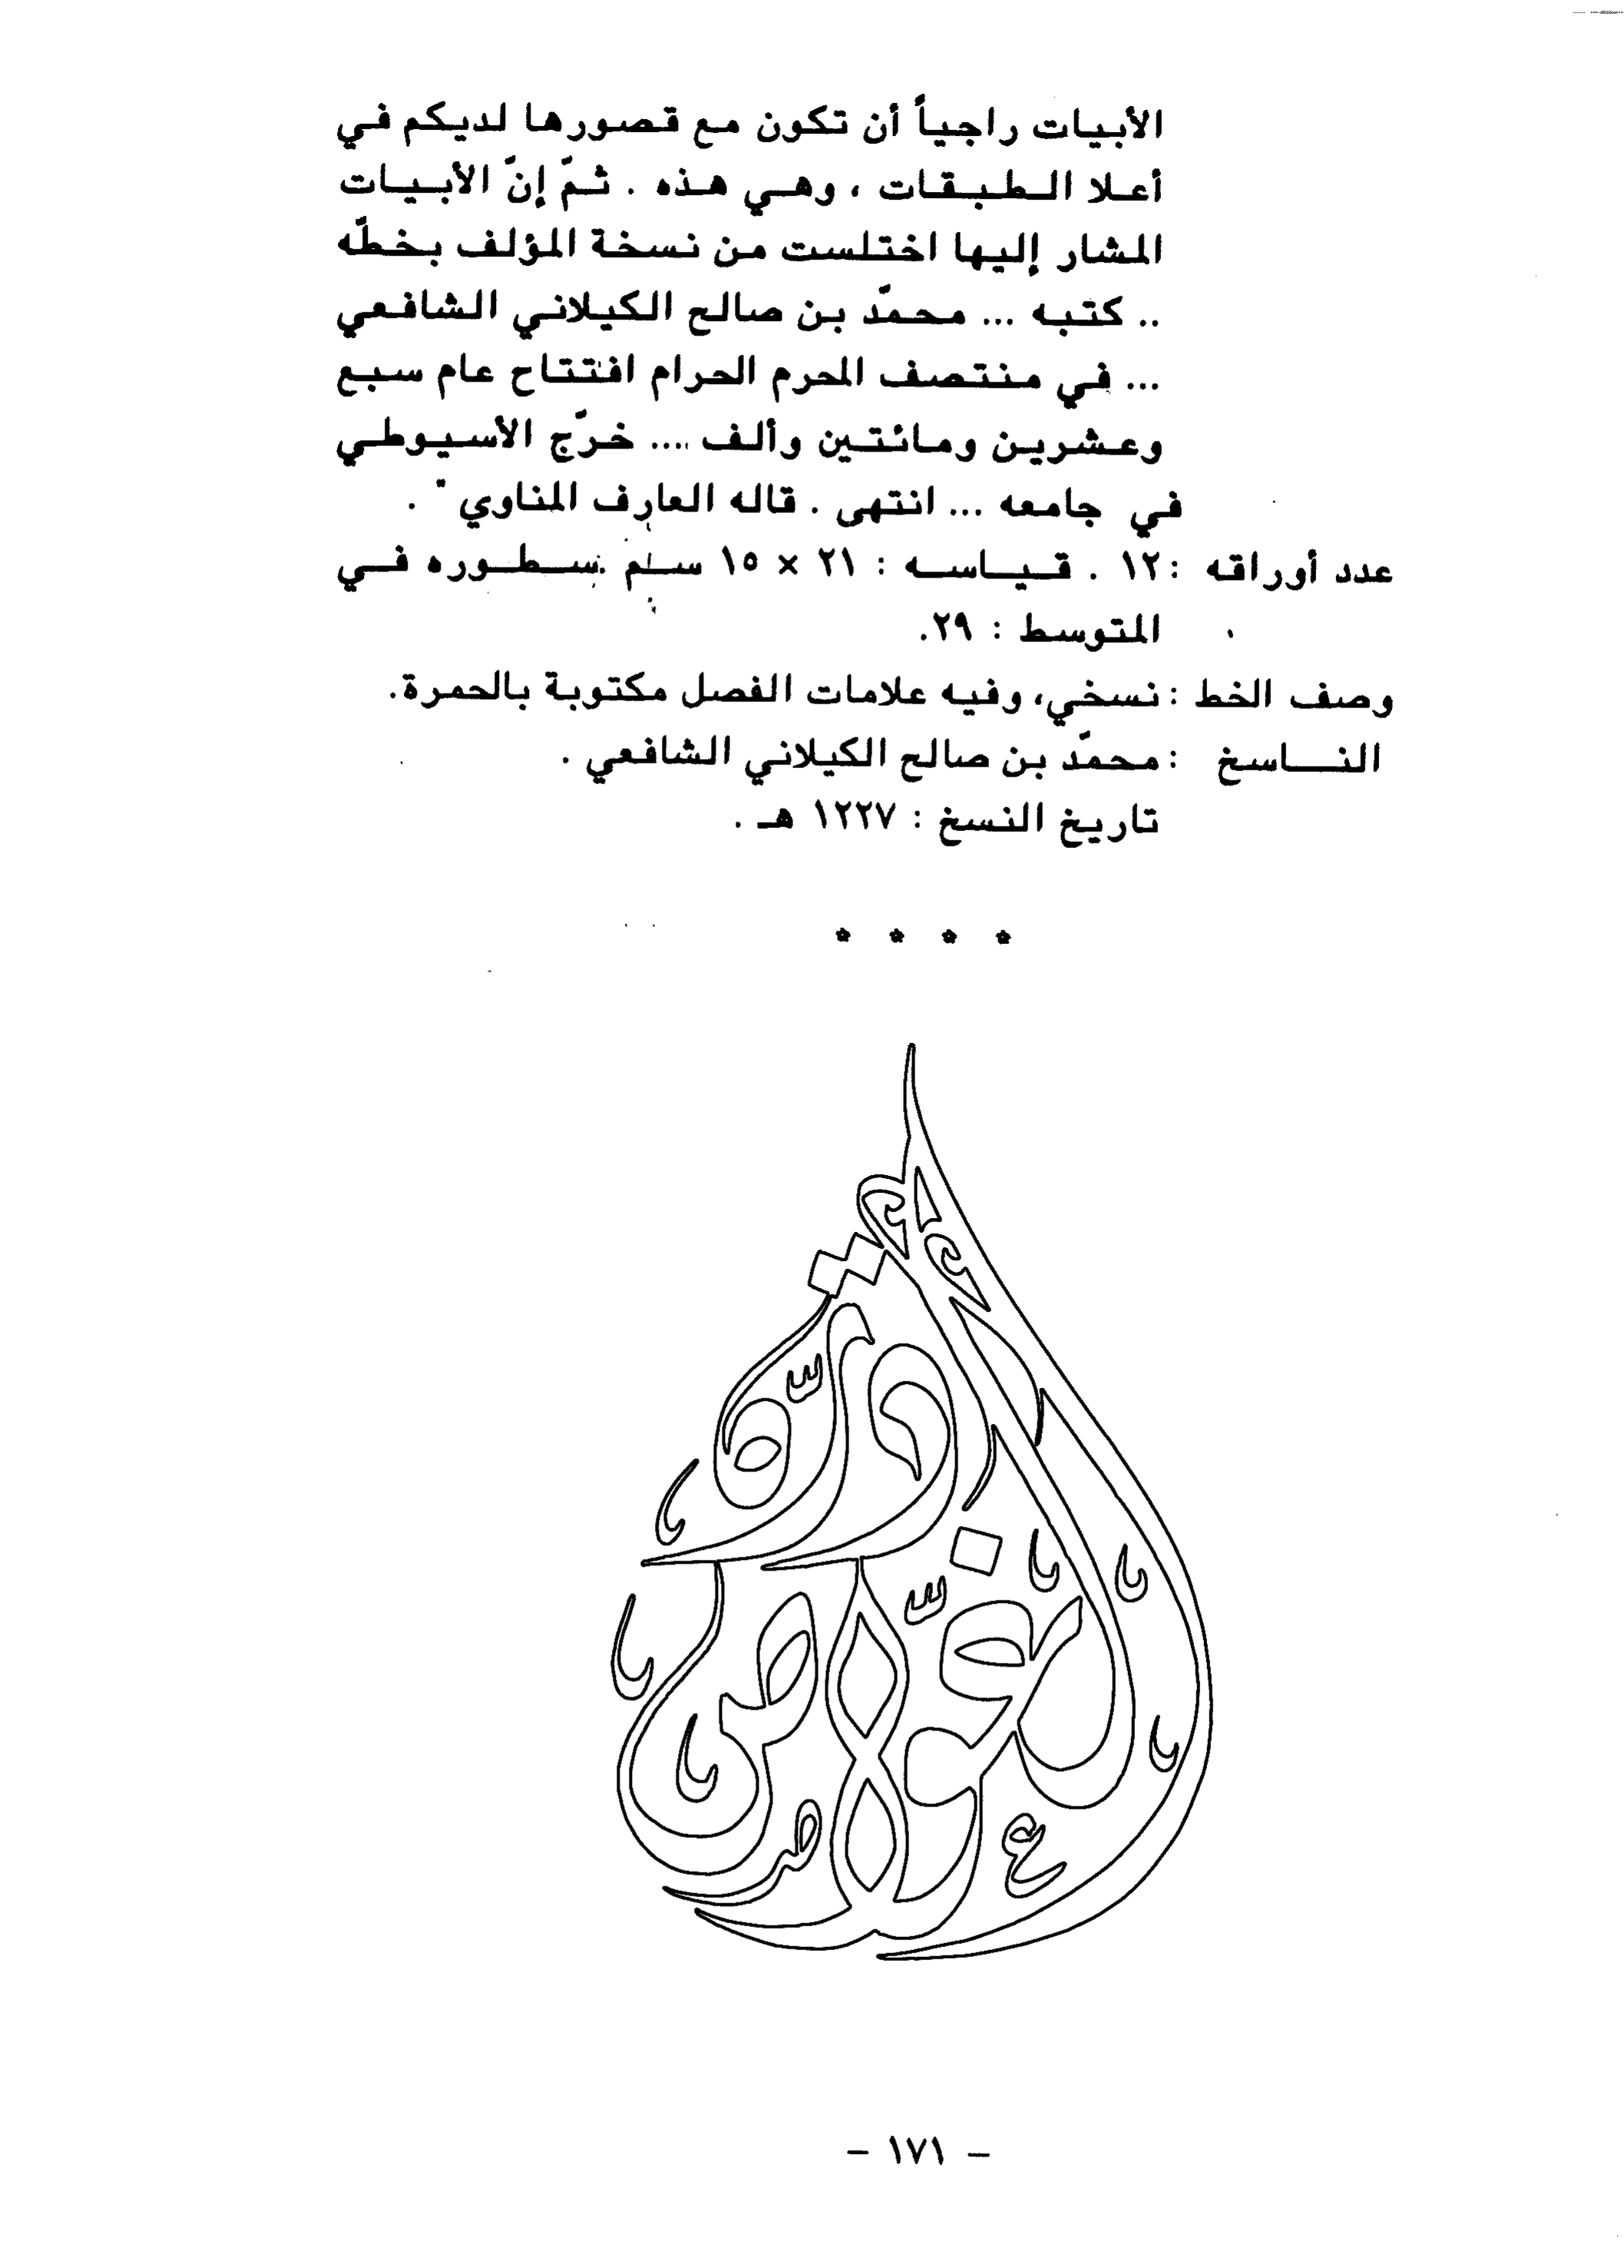 الأبيات راجياً أن تكون مع قصورها لديكم في
أعلا الطبقات ، وهي هذه . ثمّ إنّ الأبيات
المشار إليها اختلست من نسخة المؤلف بخطّه
.. كتبه ... محمّد بن صالح الكيلاني الشافعي
... في منتصف المحرم الحرام افتتاح عام سبع
وعشرين ومائتين وألف .... خرّج الأسيوطي
في جامعه ... انتهى . قاله العارف المناوي " .
عدد أوراقه : ١٢ . قياسه : ٢١ × ١٥ سم .سطوره في
المتوسط : ٢٩.
وصف الخط : نسخي، وفيه علامات الفصل مكتوبة بالحمرة.
الناسخ : محمّد بن صالح الكيلاني الشافعي .
تاريخ النسخ : ١٢٢٧ هـ .
* * * *
– ١٧١ –